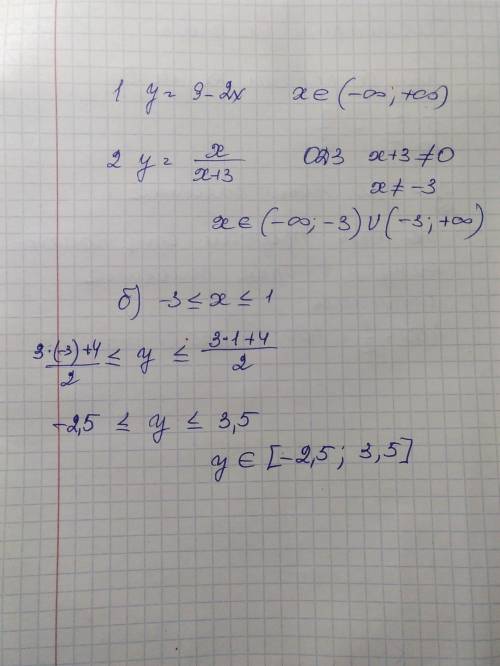 1 y = 9-2x x∈(-∞; +∞)
2 y = x/(x+3) ОДЗ x+3≠0
x≠-3
x∈(-∞; -3)∪(-3; +∞)
б) -3≤x≤1
(3·(-3)+4)/2 ≤ y ≤ (3·1+4)/2
-2,5 ≤ y ≤ 3,5
y∈[-2,5; 3,5]